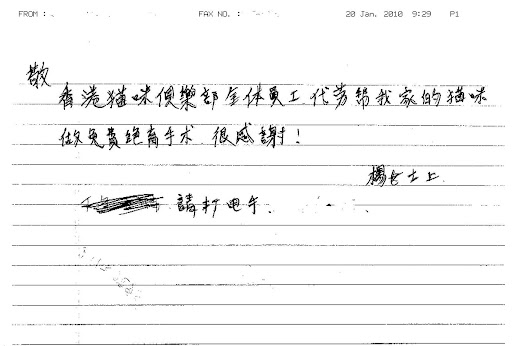 FROM :
FAX NO. :
20 Jan. 2010 9:29 P1
敬
香港猫咪俱樂部全体員工代劳帮我家的猫咪
做免費绝育手术.很感謝!
楊女士上.
請打电午.